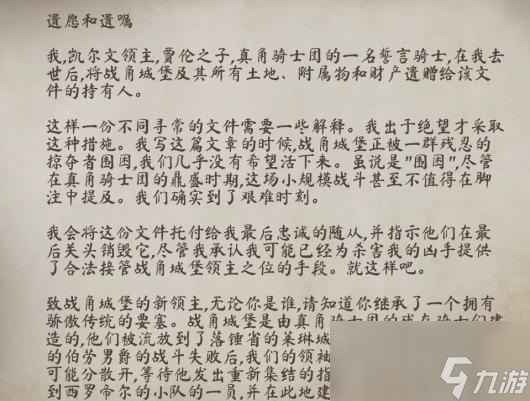 遗愿和遗嘱
我,凯尔文领主,贾伦之子,真角骑士团的一名誓言骑士,在我去
世后,将战角城堡及其所有土地、附属物和财产遗赠给该文
件的持有人。
这样一份不同寻常的文件需要一些解释。我出于绝望才采取
这种措施。我写这篇文章的时候,战角城堡正被一群残忍的
掠夺者围困,我们几乎没有希望活下来。虽说是"围困",尽管
在真角骑士团的鼎盛时期,这场小规模战斗甚至不值得在脚
注中提及。我们确实到了艰难时刻。
我会将这份文件托付给我最后忠诚的随从,并指示他们在最
后关头销毁它,尽管我承认我可能已经为杀害我的凶手提供
了合法接管战角城堡领主之位的手段。就这样吧。
致战角城堡的新领主,无论你是谁,请知道你继承了一个拥有
骄傲传统的要塞。战角城堡是由真角骑士团的残存骑士们建
造的,他们被流放到了落锤省的莱琳城
的伯劳男爵的战斗失败后,我们的领袖
可能分散开,等待他发出重新集结的指
到西罗帝尔的小队的一员,并在此地建
九游